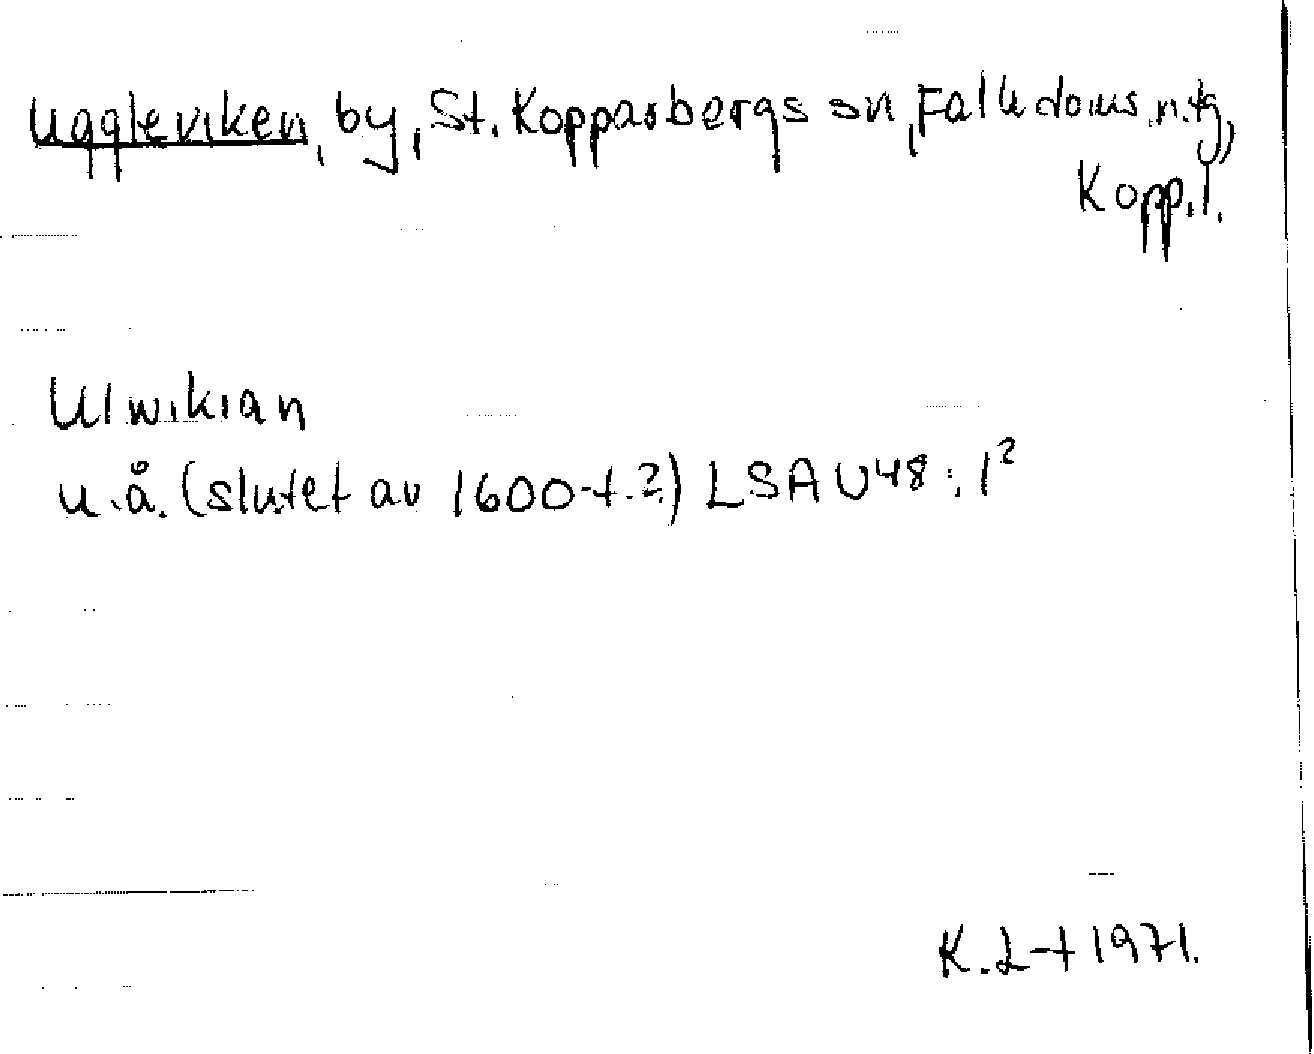 Uggleviken, by, St. Kopparbergs sn, Falu doms. n. tg,
Kopp. l.
Ulwikian
u. å. (slutet av 1600-t.?) LSA U48:1²
K. L-t 1971.